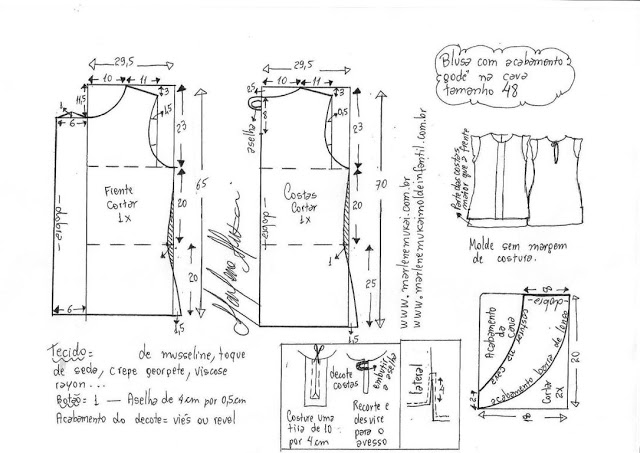 29,5
10
11
11,5
3
1,5
1
6
23
20
65
20
dobra
Frente
Cortar
1x
6
1,5
29,5
10
11
2,5
3
0,5
8
aselha
23
20
70
25
dobra
Costas
Cortar
1x
1
1,5
www.marlenemukai.com.br
www.marlenemukaimoldeinfantil.com.br
Blusa com acabamento
"godê" na cava
tamanho 48
Parte das costas
maior que a frente
Molde sem margem
de costura.
Acabamento
da
Cava
dobra
acabamento barra de lenço
Cortar
2x
20
2
Tecido= de musseline, toque
de seda, crepe georgete, viscose
rayon...
Botão= 1 — Aselha de 4cm por 0,5cm
Acabamento do decote= viés ou revel
decote
costas
embutir
a aselha
Costure uma
tira de 10
por 4cm
Recorte e
desvire
para o
avesso
lateral